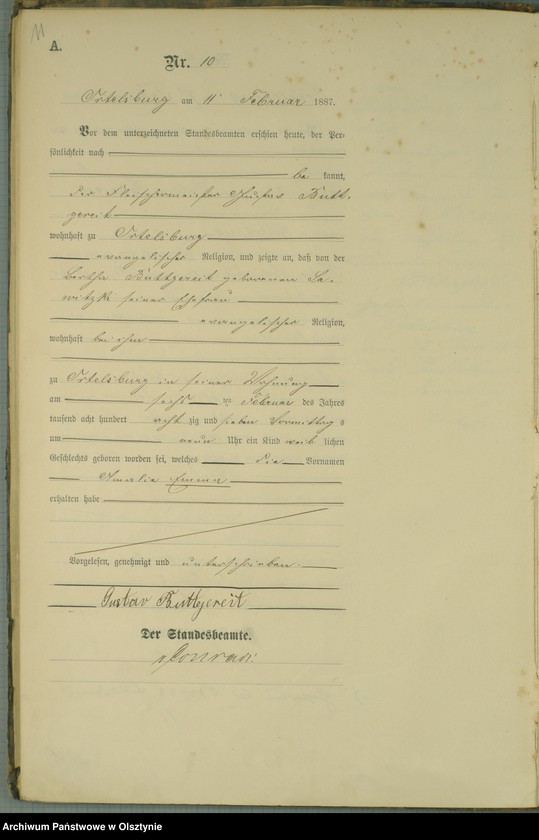 11
A.
Nr. 10
Ortelsburg am 11 Februar 1887.
Vor dem unterzeichneten Standesbeamten erschien heute, der Per-
sönlichkeit nach
be kannt,
der Fleischermeister Gustav Butt-
gereit
wohnhaft zu Ortelsburg
evangelischer Religion, und zeigte an, daß von der
Bertha Buttgereit geborenen Sa-
witzki seiner Ehefrau
evangelischer Religion,
wohnhaft bei ihm
zu Ortelsburg in seiner Wohnung
am sechs ten Februar des Jahres
tausend acht hundert acht zig und sieben Vormittag s
um neun Uhr ein Kind weib lichen
Geschlechts geboren worden sei, welches die Vornamen
Amalie Emma
erhalten habe
Vorgelesen, genehmigt und unterschrieben
Gustav Buttgereit
Der Standesbeamte.
Conradi
Archiwum Państwowe w Olsztynie